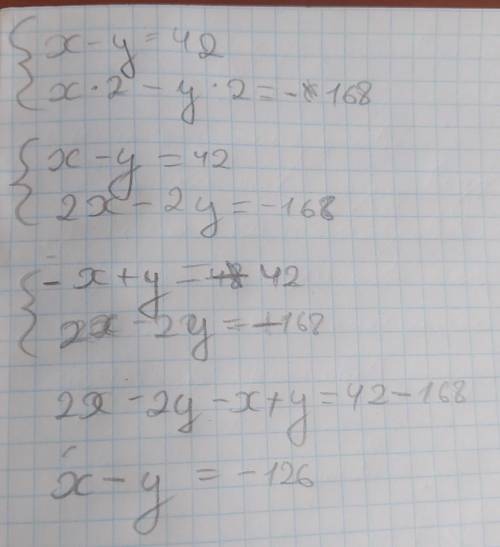 x - y = 42
x · 2 - y · 2 = - 168
x - y = 42
2x - 2y = -168
- x + y = 42
2x - 2y = -168
2x - 2y - x + y = 42 - 168
x - y = -126